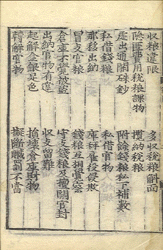 收粮違限
多收稅粮斛面
隱匿費用稅粮課物
攬納稅粮
虛出通關硃鈔
附餘錢粮私下補數
私借錢粮
私借官物
那移出納
庫秤雇役侵欺
冒支官粮
錢粮互相覺察
倉庫不覺被盜
守支錢粮及擅開官封
出納官物有違
收支留難
起解金銀足色
損壞倉庫財物
轉解官物
擬斷贓罰不當